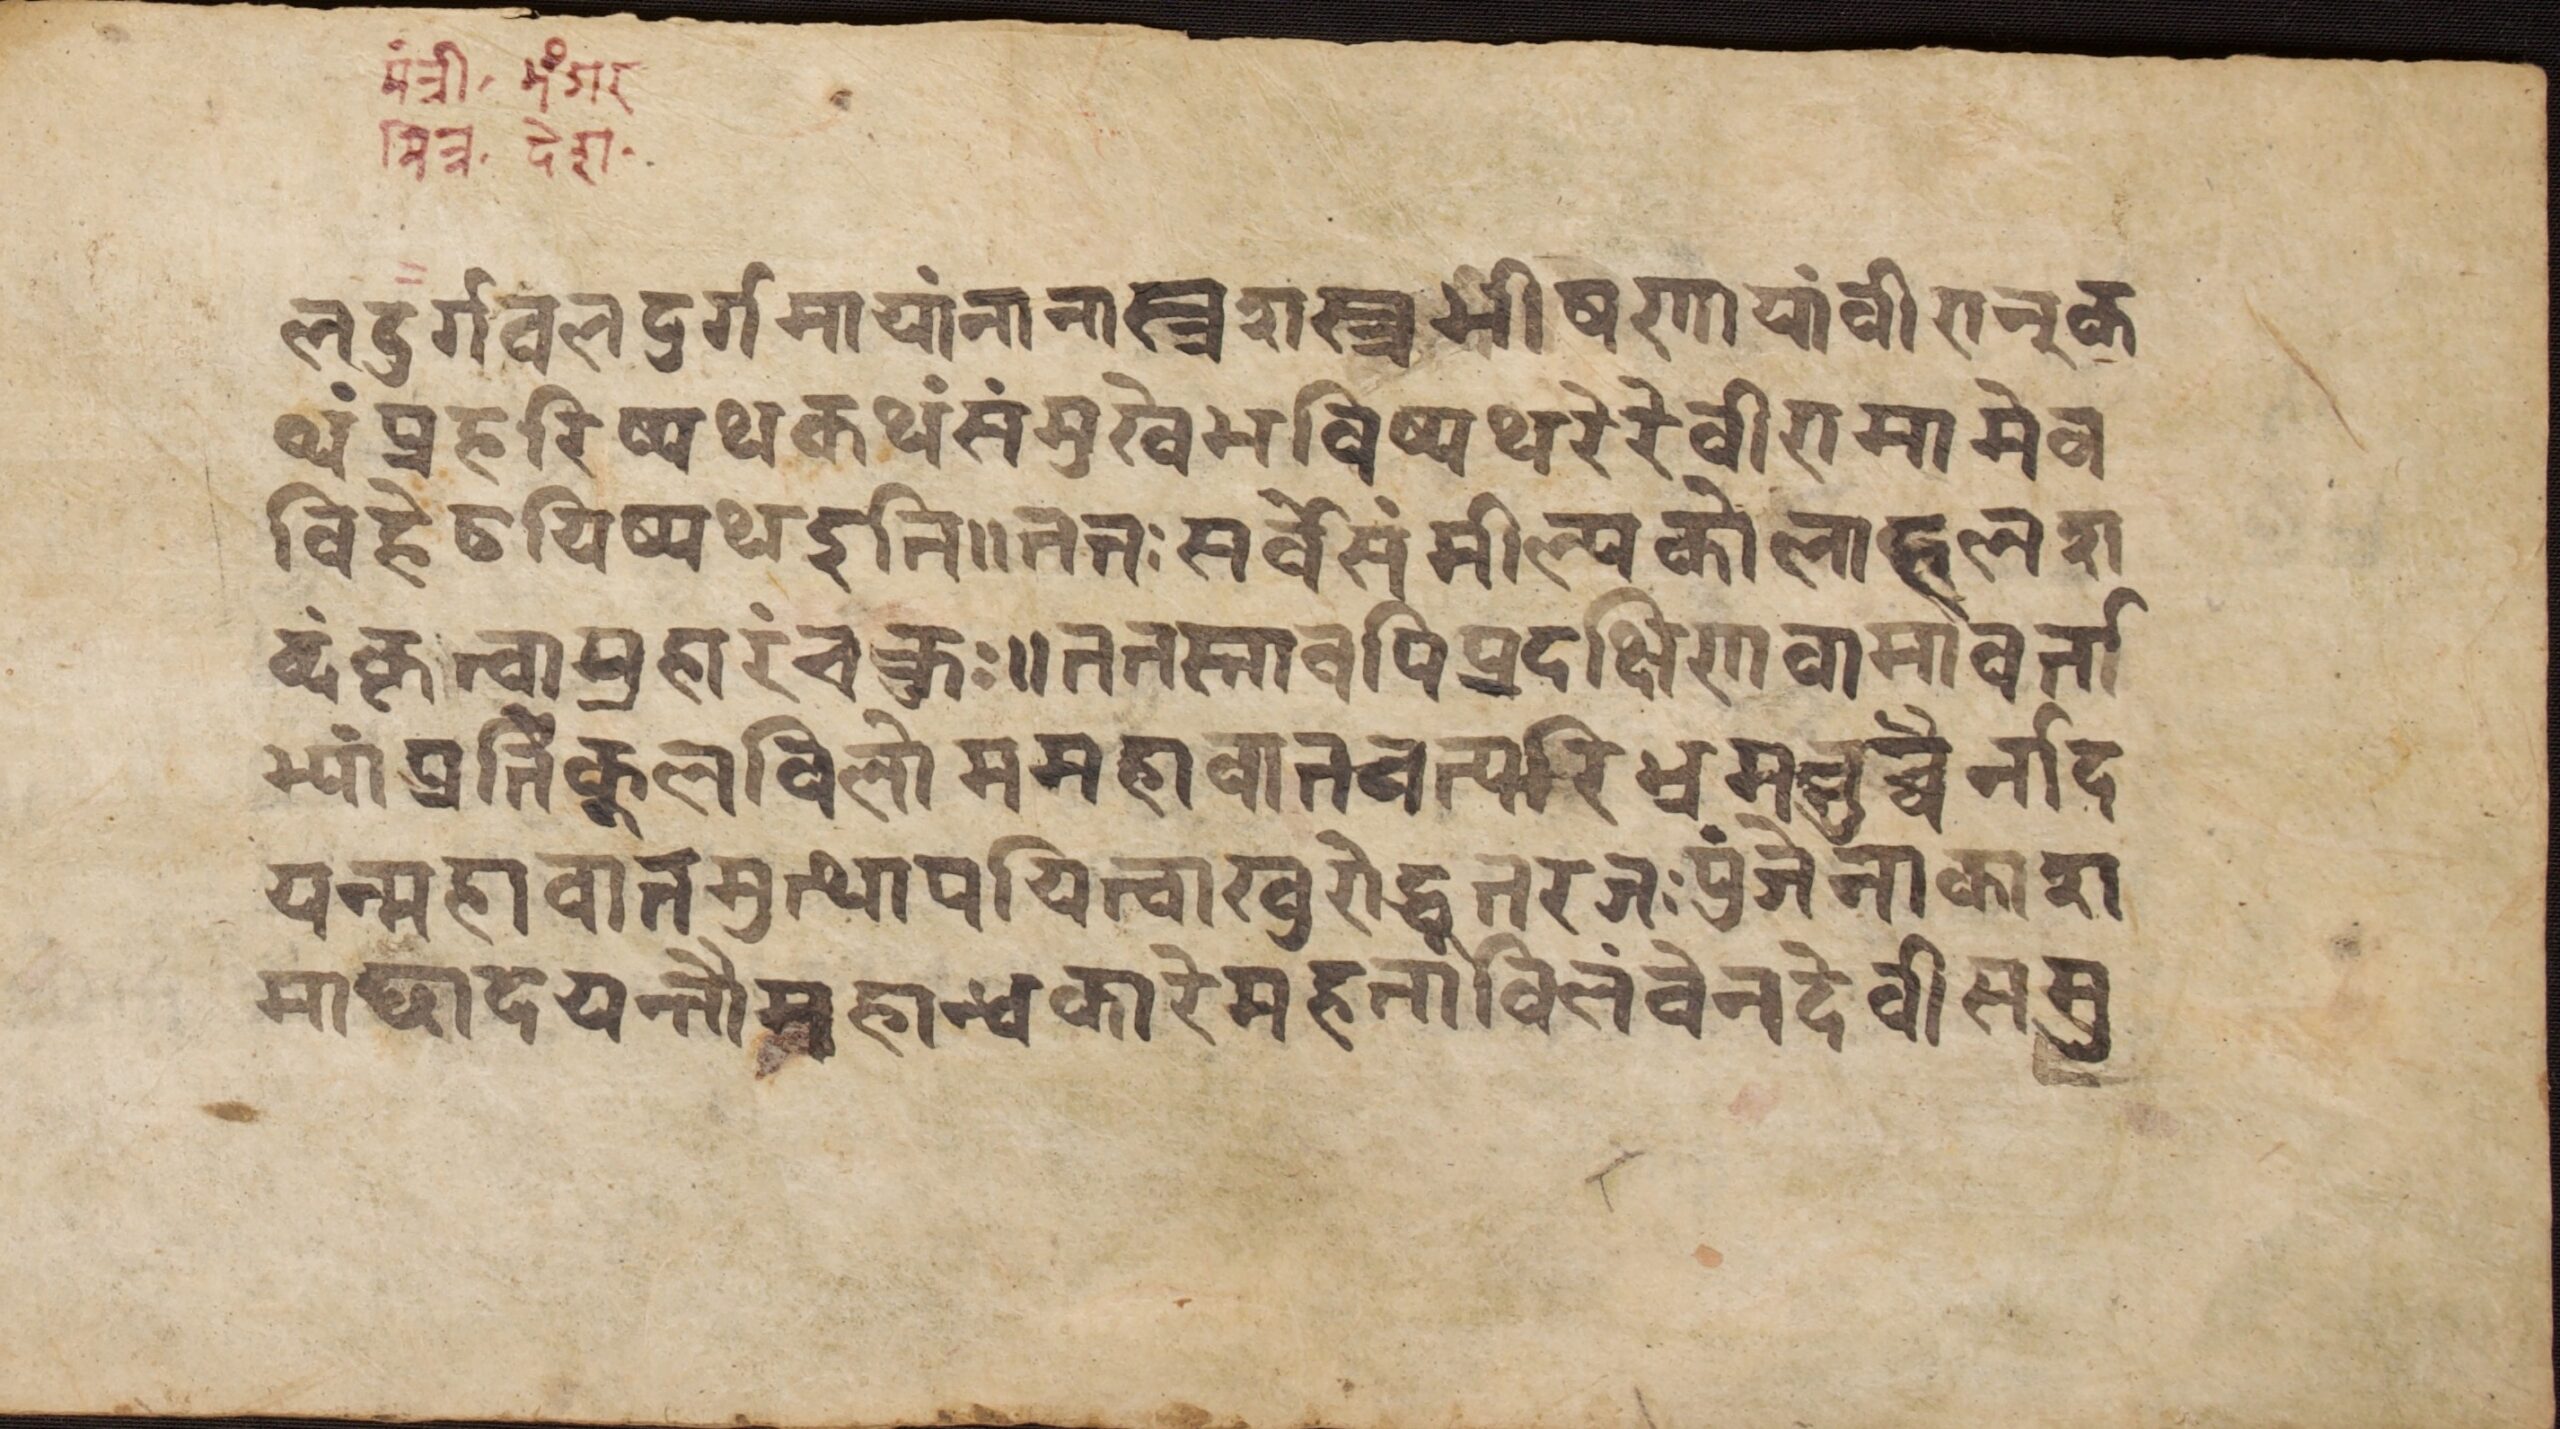 मंत्री. मंगर
मित्र. देश.
लदुर्गवलदुर्गमायांनानास्त्रशस्त्रभीषणायांवीरानूक
थंप्रहरिष्यथकथंसंमुखेभविष्यथरेरेवीरामामेव
विहेठयिष्यथइति॥ततःसर्वेसंमील्यकोलाहलश
ब्दंकृत्वाप्रहारंचक्रुः॥ततस्तावपिप्रदक्षिणवामावर्ता
भ्यांप्रतिकूलविलोममहावातवत्परिभ्रमन्नुच्चैर्नाद
यन्महावातमुत्थापयित्वाखुरोद्धूतरजःपुंजेनाकाश
माछादयन्तौमहान्धकारेमहतांविलंवेनदेवीसमु